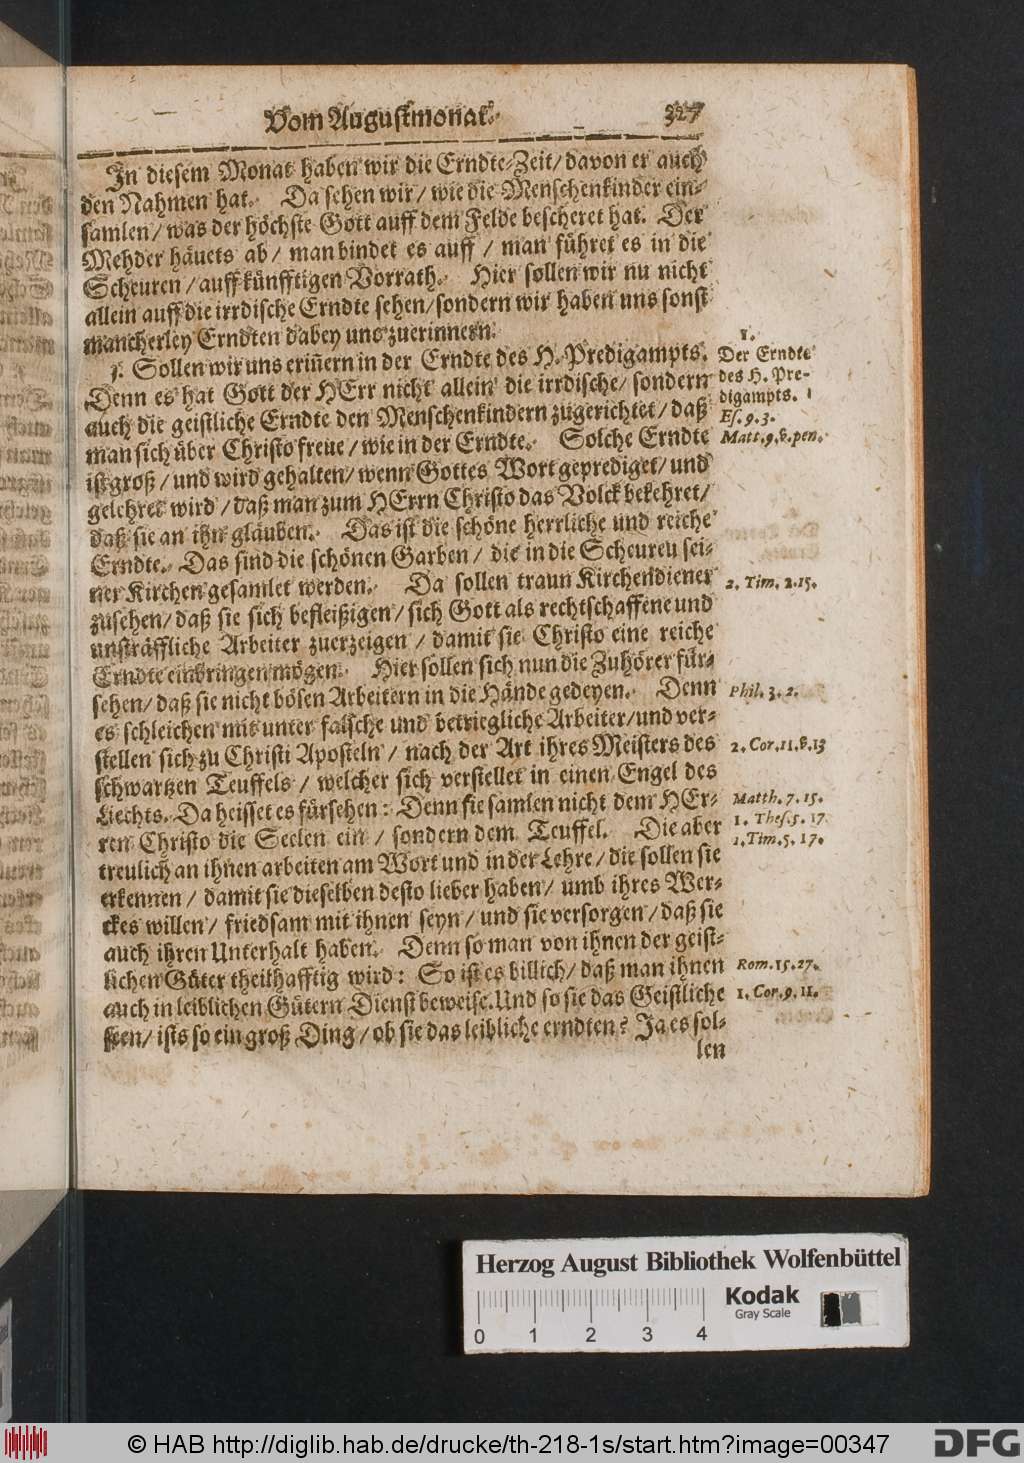 Vom Augustmonat. 327
In diesem Monat haben wir die Erndte-Zeit/ davon er auch
den Nahmen hat. Da sehen wir/ wie die Menschenkinder ein-
samlen/ was der höchste Gott auff dem Felde bescheret hat. Der
Mehder häuets ab/ man bindet es auff/ man führet es in die
Scheuren/ auff künfftigen Vorrath. Hier sollen wir nu nicht
allein auff die irrdische Erndte sehen/ sondern wir haben uns sonst
mancherley Erndten dabey uns zuerinnern.
1. Sollen wir uns erin̄ern in der Erndte des H. Predigampts.
Denn es hat Gott der HErr nicht allein die irrdische/ sondern
auch die geistliche Erndte den Menschenkindern zugerichtet/ daß
man sich über Christo freue/ wie in der Erndte. Solche Erndte
ist groß/ und wird gehalten/ wenn Gottes Wort geprediget/ und
gelehret wird/ daß man zum HErrn Christo das Volck bekehret/
daß sie an ihn gläuben. Das ist die schöne herrliche und reiche
Erndte. Das sind die schönen Garben/ die in die Scheuren sei-
ner Kirchen gesamlet werden. Da sollen traun Kirchendiener
zusehen/ daß sie sich befleißigen/ sich Gott als rechtschaffene und
unsträffliche Arbeiter zuerzeigen/ damit sie Christo eine reiche
Erndte einbringen mögen. Hier sollen sich nun die Zuhörer für-
sehen/ daß sie nicht bösen Arbeitern in die Hände gedeyen. Denn
es schleichen mit unter falsche und betriegliche Arbeiter/ und ver-
stellen sich zu Christi Aposteln/ nach der Art ihres Meisters des
schwartzen Teuffels/ welcher sich verstellet in einen Engel des
Liechts. Da heisset es fürsehen: Denn sie samlen nicht dem HEr-
ren Christo die Seelen ein/ sondern dem Teuffel. Die aber
treulich an ihnen arbeiten am Wort und in der Lehre/ die sollen sie
erkennen/ damit sie dieselben desto lieber haben/ umb ihres Wer-
ckes willen/ friedsam mit ihnen seyn/ und sie versorgen/ daß sie
auch ihren Unterhalt haben. Denn so man von ihnen der geist-
lichen Güter theilhafftig wird: So ist es billich/ daß man ihnen
auch in leiblichen Gütern Dienst beweise. Und so sie das Geistliche
seen/ ists so ein groß Ding/ ob sie das leibliche erndten? Ja es sol-
len
1.
Der Erndte
des H. Pre-
digampts.
Es. 9. 3.
Matt. 9. v. pen.
2. Tim. 2. 15.
Phil. 3. 2.
2. Cor. 11. v. 13
Matth. 7. 15.
1. Thes. 5. 17.
1. Tim. 5. 17.
Rom. 15. 27.
1. Cor. 9. 11.
Herzog August Bibliothek Wolfenbüttel
Kodak
Gray Scale
0 1 2 3 4
© HAB http://diglib.hab.de/drucke/th-218-1s/start.htm?image=00347
DFG